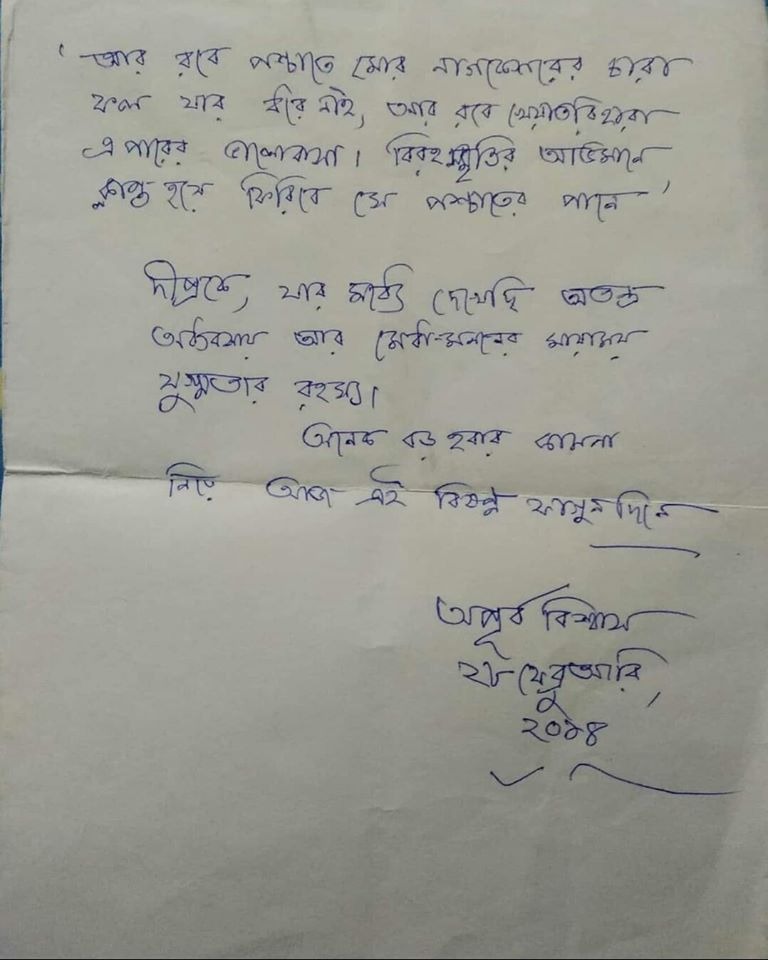 'আর রবে পশ্চাতে মোর নাগকেশরের চারা
ফুল যার ধরে নাই, আর রবে খেয়াতরিহারা
এ পারের ভালোবাসা। বিরহস্মৃতির অভিমানে
ক্লান্ত হয়ে ফিরিবে সে পশ্চাতের পানে'
দীপ্রকে, যার মধ্যে দেখেছি অতন্ত
অধ্যবসায় আর মেধা-মননের মায়াময়
যুগ্মতার রহস্য।
অনেক বড় হবার কামনা
নিয়ে আজ এই বিষণ্ণ ফাগুন দিনে
অপূর্ব বিশ্বাস
২৮ ফেব্রুআরি,
২০১৪